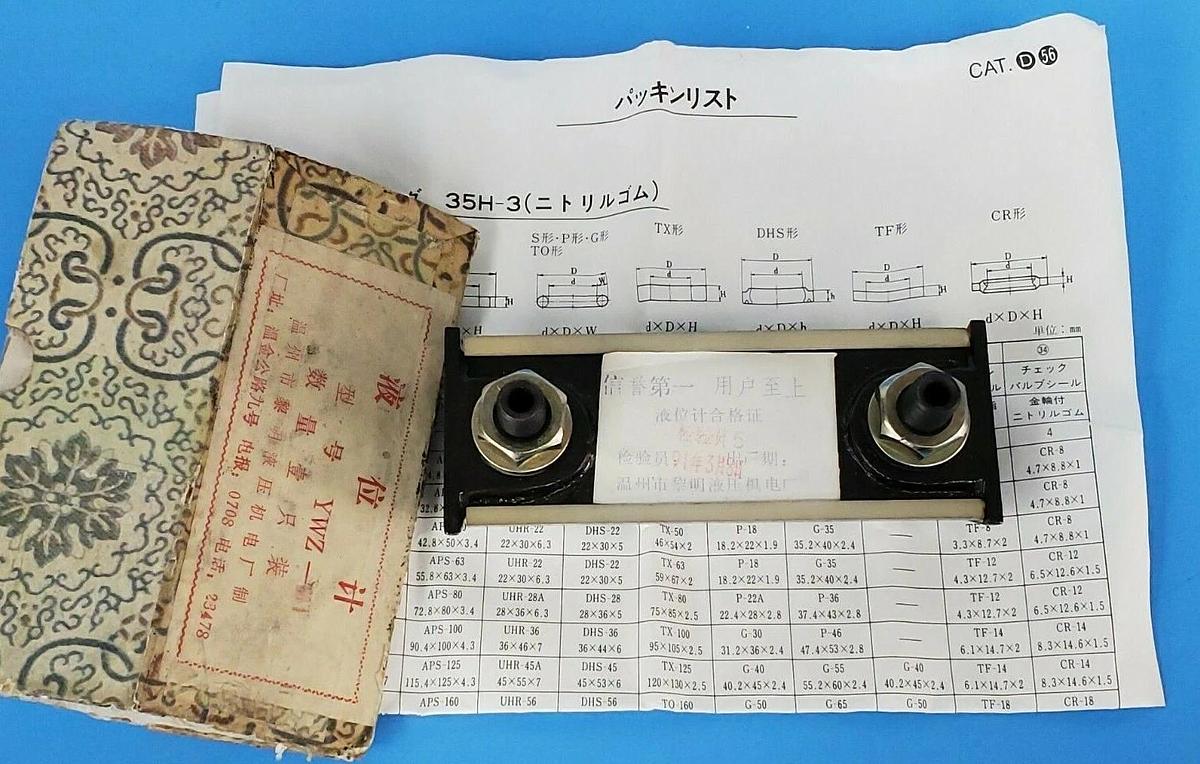 CAT. D 56
パッキンリスト
35H-3(ニトリルゴム)
S形・P形・G形
TO形
TX形
DHS形
TF形
CR形
d×D×W
d×D×H
d×D×h
d×D×H
d×D×H
単位:mm
㉞
チェック
バルブシール
金輪付
ニトリルゴム
4
CR-8
4.7×8.8×1
CR-8
4.7×8.8×1
42.8×50×3.4 UHR-22 22×30×6.3 DHS-22 22×30×5 TX-50 46×54×2 P-18 18.2×22×1.9 G-35 35.2×40×2.4 — TF-8 3.3×8.7×2 CR-8 4.7×8.8×1
APS-63 55.8×63×3.4 UHR-22 22×30×6.3 DHS-22 22×30×5 TX-63 59×67×2 P-18 18.2×22×1.9 G-35 35.2×40×2.4 — TF-12 4.3×12.7×2 CR-12 6.5×12.6×1.5
APS-80 72.8×80×3.4 UHR-28A 28×36×6.3 DHS-28 28×36×5 TX-80 75×85×2.5 P-22A 22.4×28×2.8 P-36 37.4×43×2.8 — TF-12 4.3×12.7×2 CR-12 6.5×12.6×1.5
APS-100 90.4×100×4.3 UHR-36 36×46×7 DHS-36 36×44×6 TX-100 95×105×2.5 G-30 31.2×36×2.4 P-46 47.4×53×2.8 — TF-14 6.1×14.7×2 CR-14 8.3×14.6×1.5
APS-125 115.4×125×4.3 UHR-45A 45×55×7 DHS-45 45×53×6 TX-125 120×130×2.5 G-40 40.2×45×2.4 G-55 55.2×60×2.4 G-40 40.2×45×2.4 TF-14 6.1×14.7×2 CR-14 8.3×14.6×1.5
APS-160 UHR-56 DHS-56 TO-160 G-50 G-65 G-50 TF-18 CR-18
信誉第一 用户至上
液位计合格证
检验员 91年3月 出厂期:
温州市黎明液压机电厂
液位计
型号 YWZ—
数量壹只装
温州市黎明液压机电厂制
厂址:温金公路九号 电报:0708 电话:23478